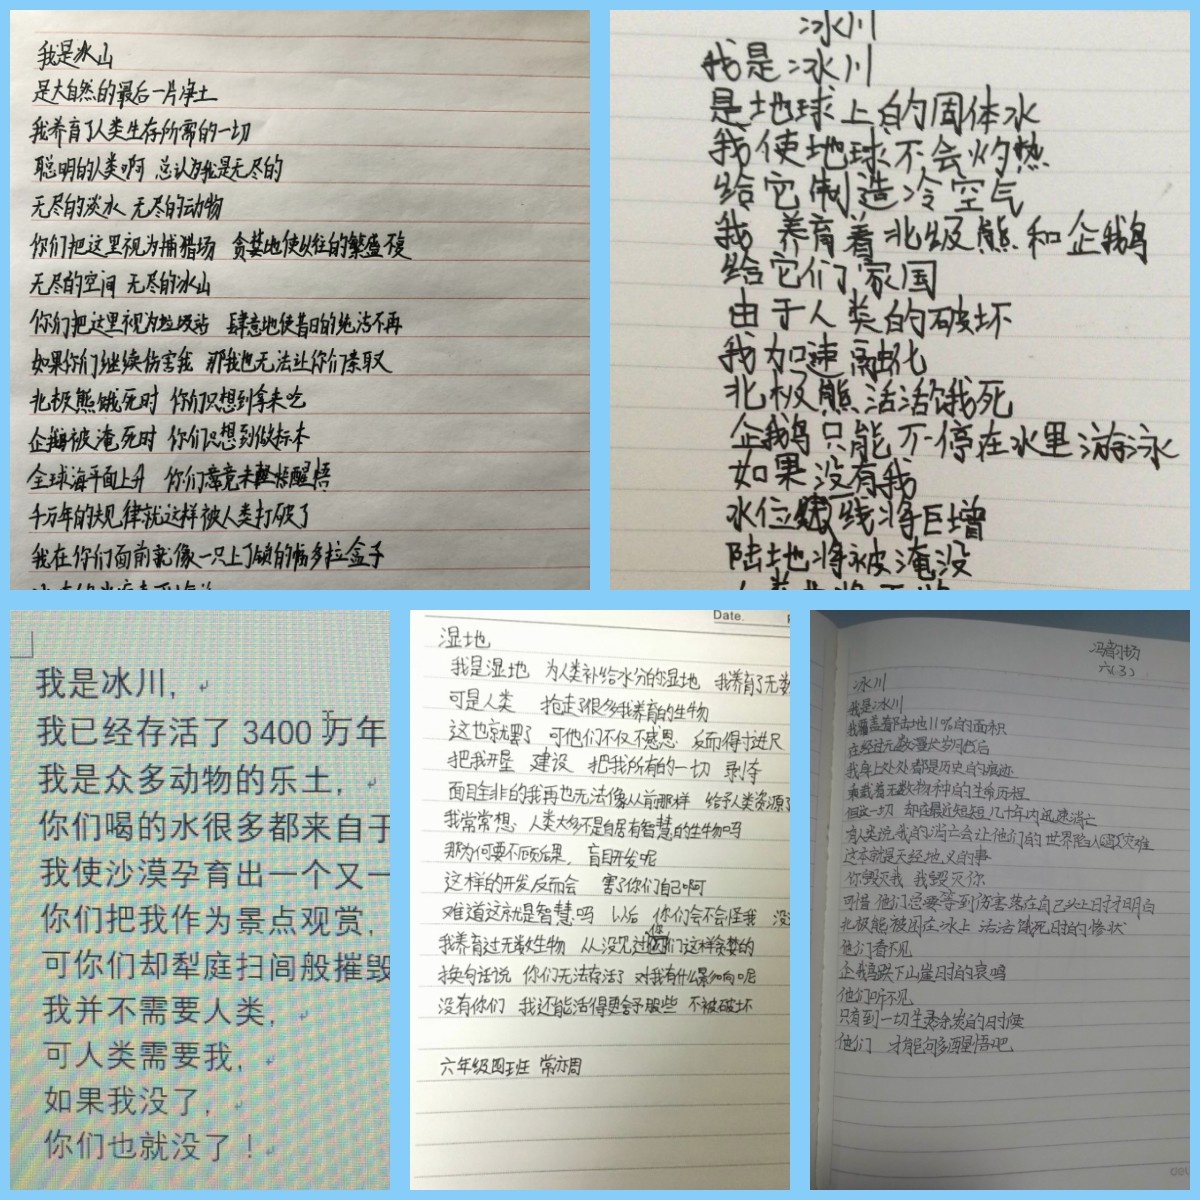 我是冰山
是大自然的最后一片净土
我养育了人类生存所需的一切
聪明的人类啊 总认为我是无尽的
无尽的淡水 无尽的动物
你们把这里视为捕猎场 贪婪地使以往的繁盛不复
无尽的空间 无尽的冰山
你们把这里视为垃圾站 肆意地使昔日的纯洁不再
如果你们继续伤害我 那我也无法让你们索取
北极熊饿死时 你们只想到拿来吃
企鹅被淹死时 你们只想到做标本
全球海平面上升 你们竟未醒悟
千万年的规律就这样被人类打破了
我在你们面前就像一只上了锁的潘多拉盒子
冰川
我是冰川
是地球上的固体水
我使地球不会灼热
给它制造冷空气
我 养育着北级熊和企鹅
给它们家园
由于人类的破坏
我加速融化
北极熊活活饿死
企鹅只能不停在水里游泳
如果没有我
水位线将巨增
陆地将被淹没
我是冰川，
我已经存活了 3400 万年
我是众多动物的乐土，
你们喝的水很多都来自于
我使沙漠孕育出一个又一
你们把我作为景点观赏，
可你们却犁庭扫闾般摧毁
我并不需要人类，
可人类需要我，
如果我没了，
你们也就没了！
Date.
湿地
我是湿地 为人类补给水分的湿地 我养育了无数
可是人类 抢走了很多我养育的生物
这也就罢了 可他们不仅不感恩 反而得寸进尺
把我开垦 建设 把我所有的一切 剥夺
面目全非的我再也无法像从前那样 给予人类资源了
我常常想：人类大多不是自居有智慧的生物吗
那为何要不顾后果，盲目开发呢
这样的开发反而会 害了你们自己啊
难道这就是智慧吗 以后 你们会不会怪我 没
我养育过无数生物 从没见过你们这样贪婪的
换句话说 你们无法存活了 对我有什么影响呢
没有你们 我还能活得更舒服些 不被破坏
六年级四班 常亦周
冯韵畅
六(3)
冰川
我是冰川
我覆盖着陆地11%的面积
在经过无数漫长岁月以后
我身上处处都是历史的痕迹
承载着无数物种的生命历程
但这一切 却在最近短短几十年内迅速消亡
有人说我的消亡会让他们的世界陷入灾难
这本就是天经地义的事
你毁灭我 我毁灭你
可惜他们总要等到伤害落在自己头上时才明白
北极熊被困在冰上 活活饿死时的惨状
他们看不见
企鹅跌下山崖时的哀鸣
他们听不见
只有到一切生灵涂炭的时候
他们 才能够醒悟吧